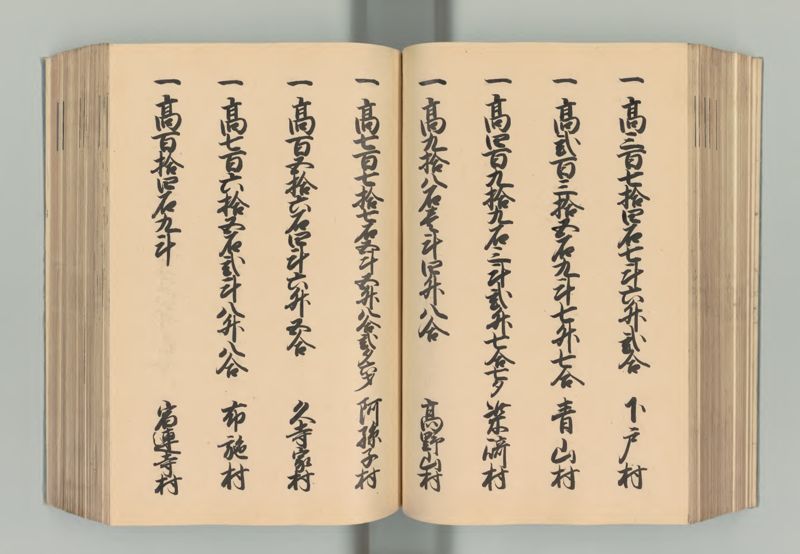 一 高三百七拾四石七斗六升弐合 下戸村
一 高弐百三拾五石九斗七升七合 青山村
一 高四百九拾九石三斗弐升七合七夕 柴崎村
一 高九拾八石壱斗四升八合 高野山村
一 高七百七拾七石五斗五升八合弐夕六才 阿孫子村
一 高百五拾六石四斗六升五合 久寺家村
一 高七百六拾五石弐斗八升八合 布施村
一 高百拾四石九斗 宿連寺村